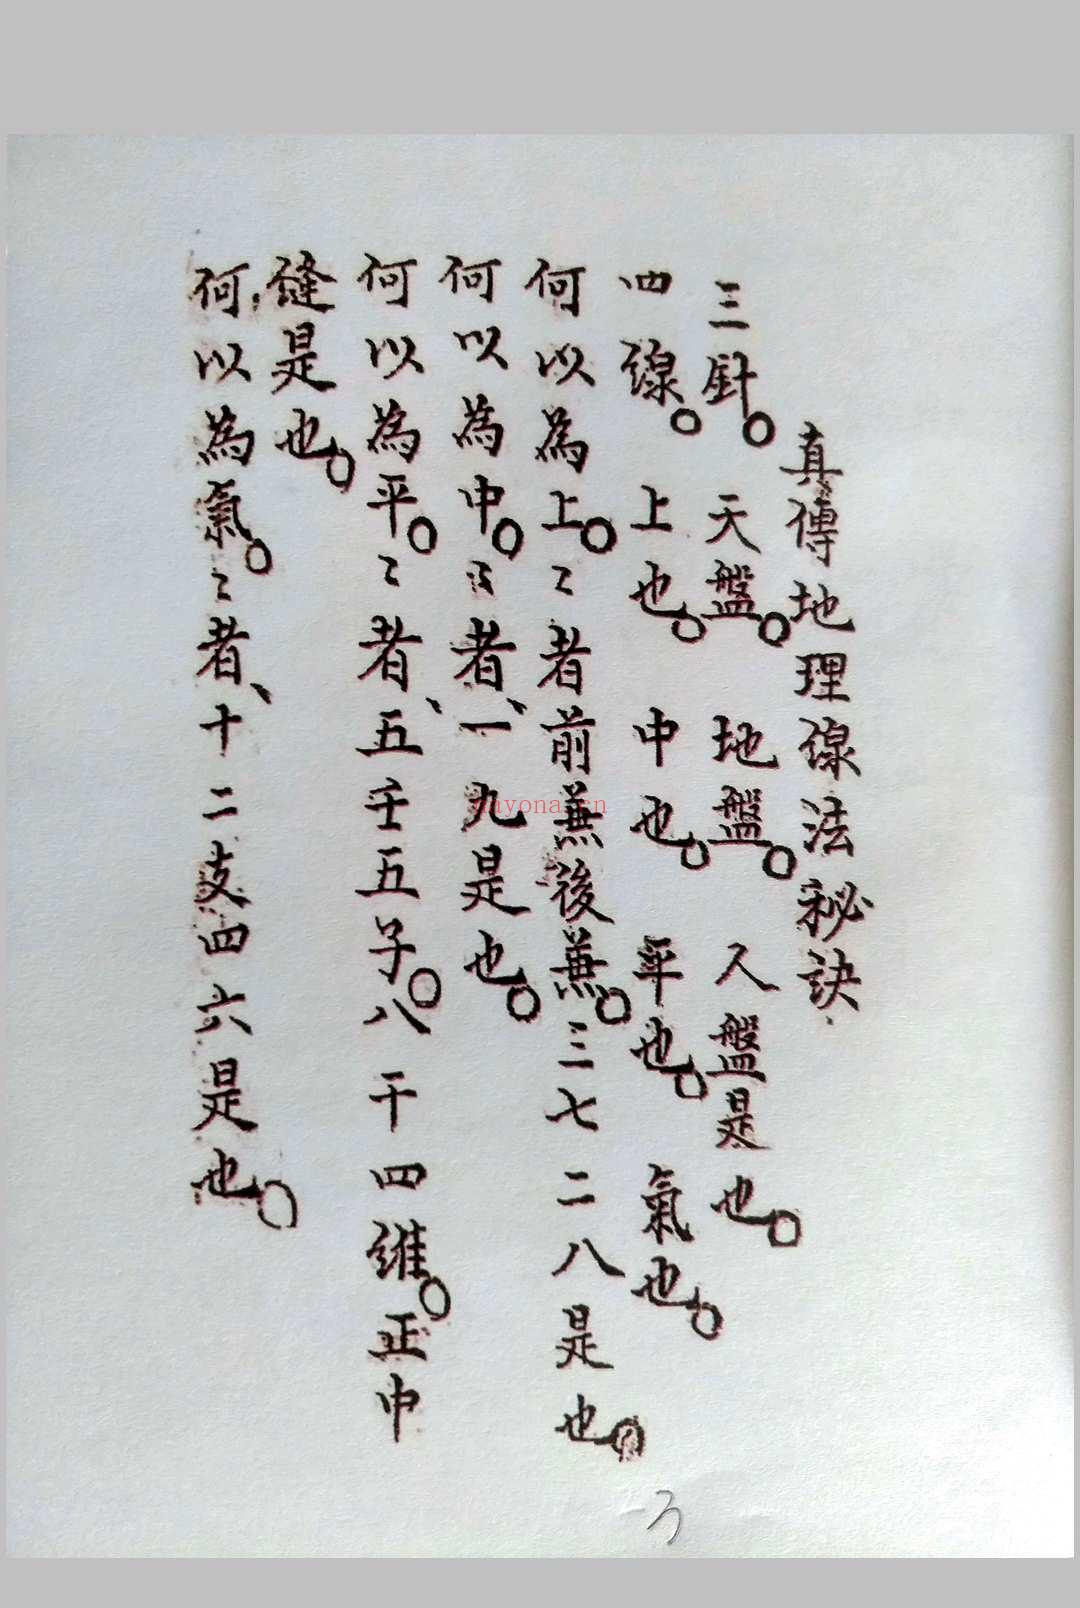 真傳地理線法秘訣
三針。天盤。地盤。人盤是也。
四線。上也。中也。平也。氣也。
何以為上。〻者前蒹後蒹。三七二八是也。
何以為中。〻者、一九是也。
何以為平。〻者、五壬五子。八干四維。正中
縫是也。
何以為氣。〻者、十二支四六是也。